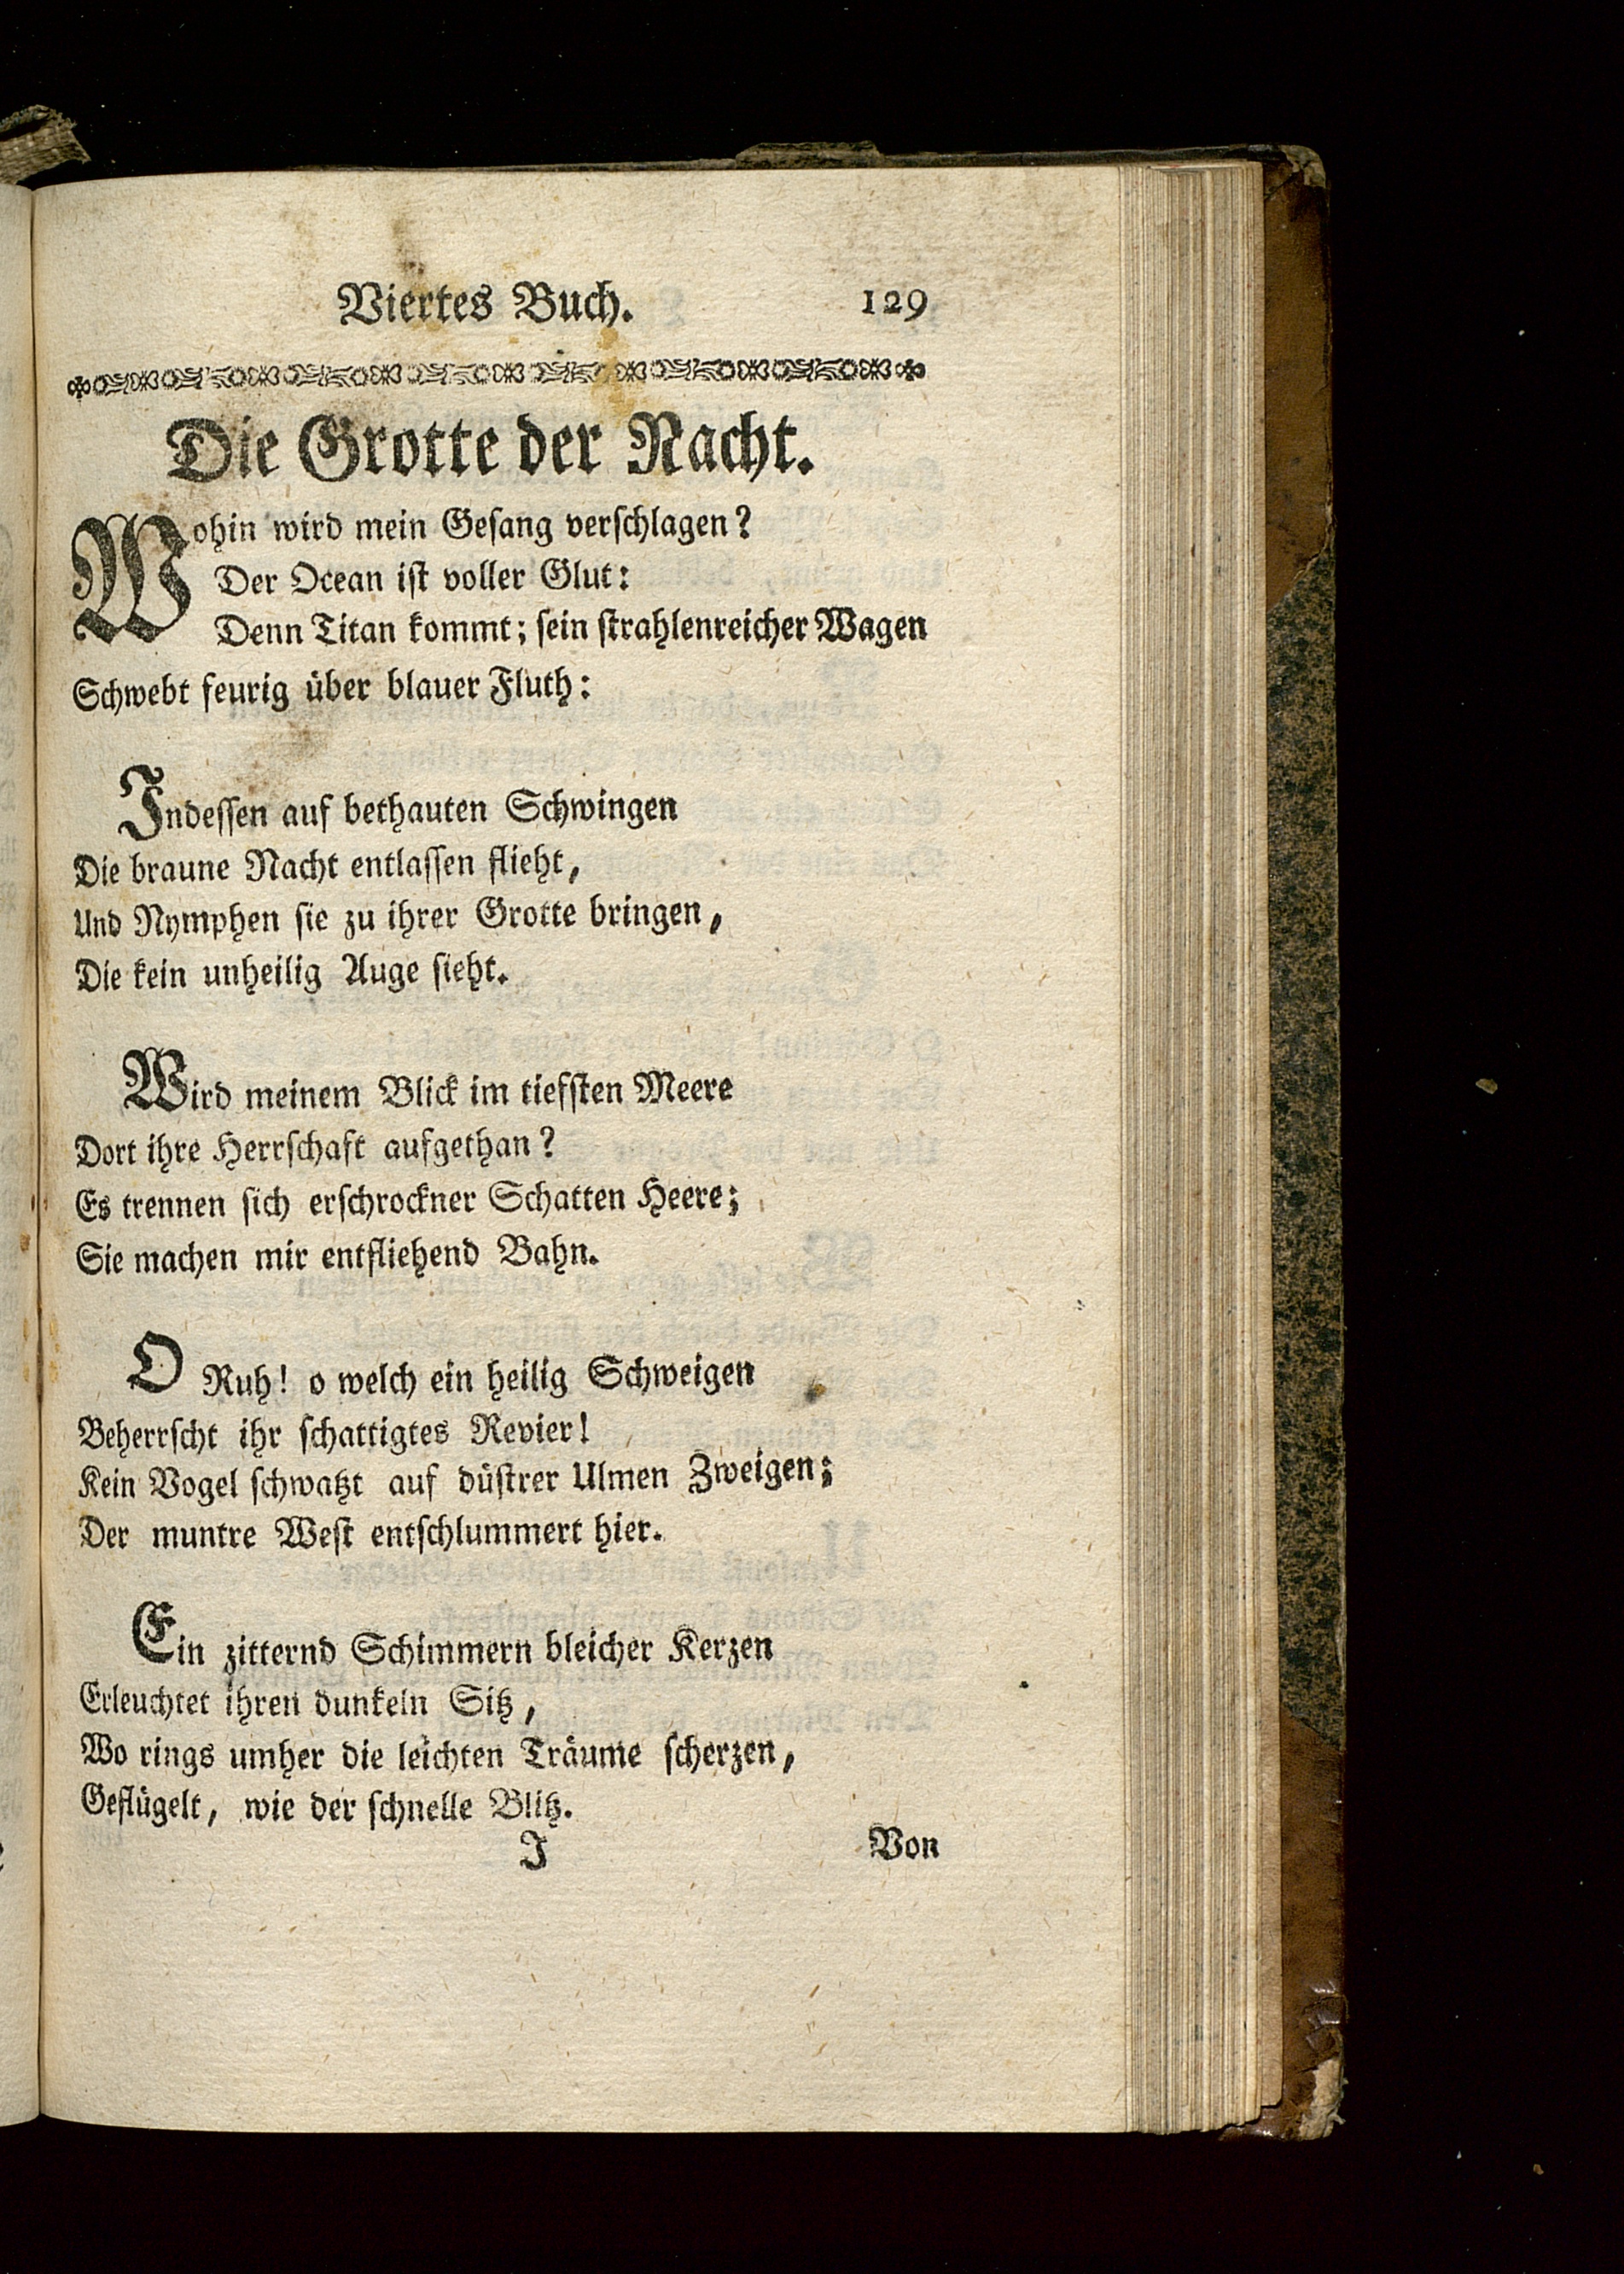 Viertes Buch. 129
Die Grotte der Nacht.
Wohin wird mein Gesang verschlagen?
Der Ocean ist voller Glut:
Denn Titan kommt; sein strahlenreicher Wagen
Schwebt feurig über blauer Fluth:
Indessen auf bethauten Schwingen
Die braune Nacht entlassen flieht,
Und Nymphen sie zu ihrer Grotte bringen,
Die kein unheilig Auge sieht.
Wird meinem Blick im tiefsten Meere
Dort ihre Herrschaft aufgethan?
Es trennen sich erschrockner Schatten Heere;
Sie machen mir entfliehend Bahn.
O Ruh! o welch ein heilig Schweigen
Beherrscht ihr schattigtes Revier!
Kein Vogel schwatzt auf düstrer Ulmen Zweigen;
Der muntre West entschlummert hier.
Ein zitternd Schimmern bleicher Kerzen
Erleuchtet ihren dunkeln Sitz,
Wo rings umher die leichten Träume scherzen,
Geflügelt, wie der schnelle Blitz.
I Von